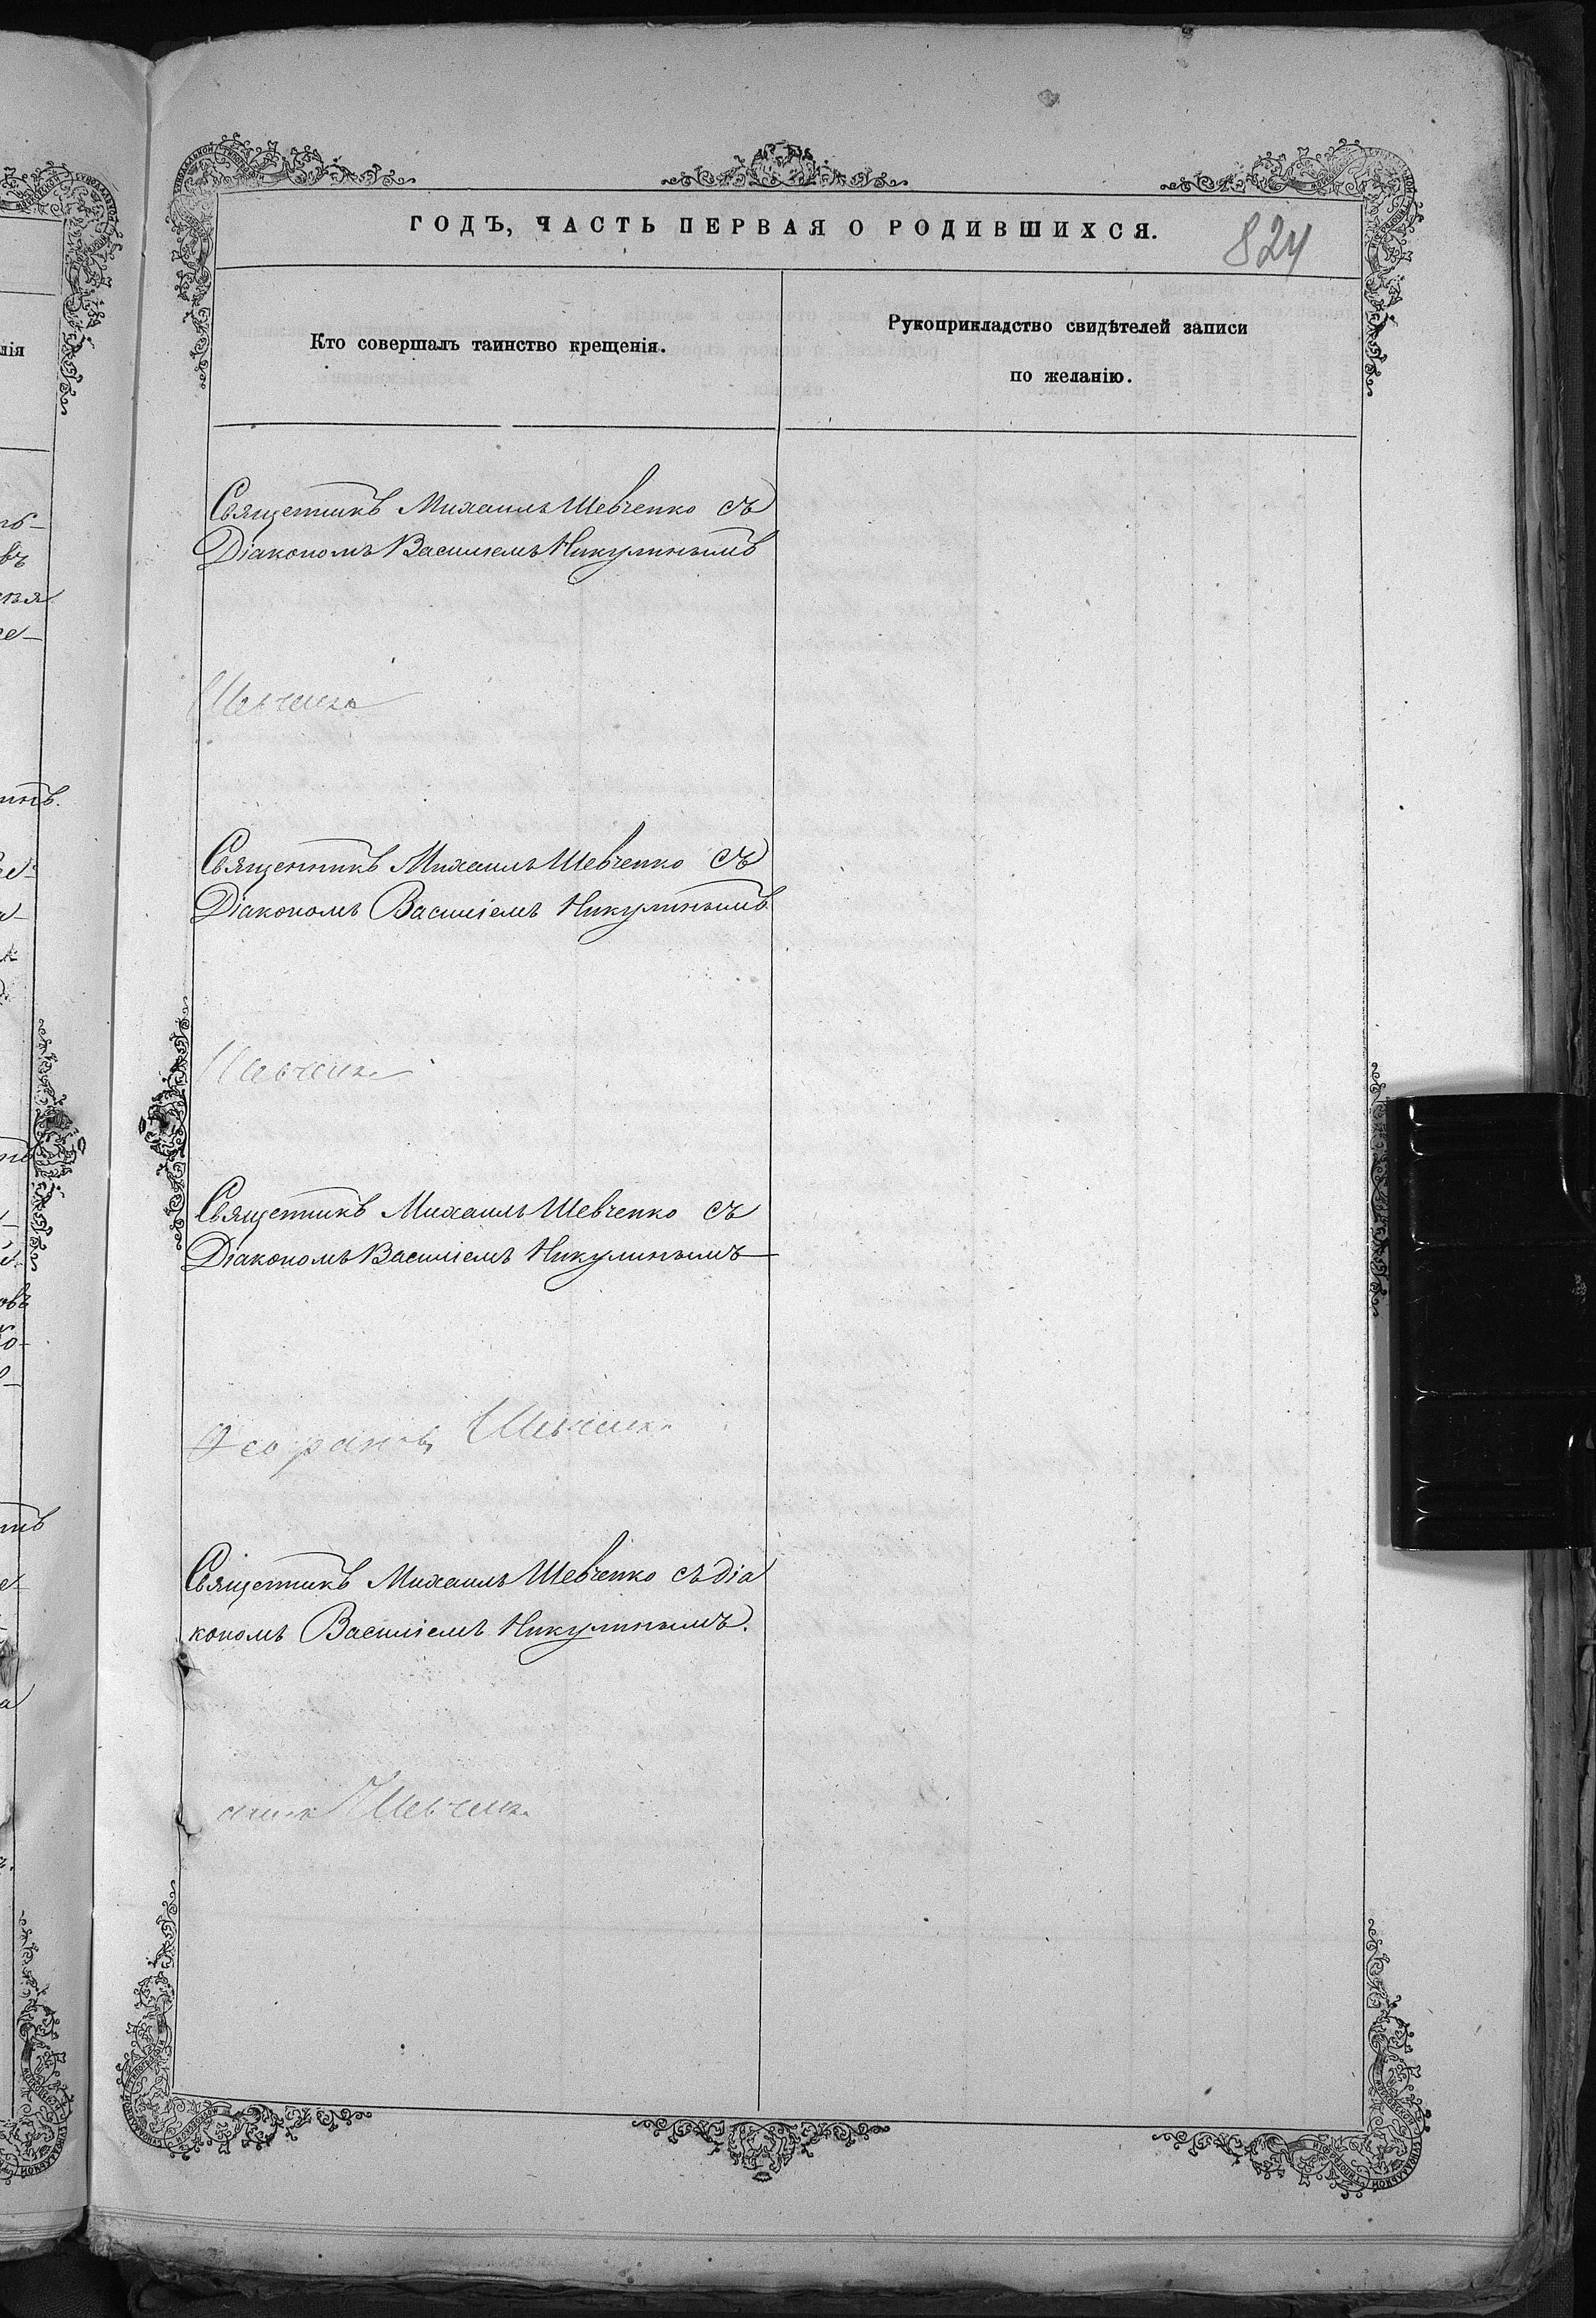 ГОДЪ, ЧАСТЬ ПЕРВАЯ О РОДИВШИХСЯ.
824
Кто совершалъ таинство крещенія.
Рукоприкладство свидѣтелей записи
по желанію.
Священникъ Михаилъ Шевченко съ
Діакономъ Василіемъ Никулинымъ
Шевченко
Священникъ Михаилъ Шевченко съ
Діакономъ Василіемъ Никулинымъ
Шевченко
Священникъ Михаилъ Шевченко съ
Діакономъ Василіемъ Никулинымъ
Шевченко
Священникъ Михаилъ Шевченко съ діа
кономъ Василіемъ Никулинымъ.
Шевченко